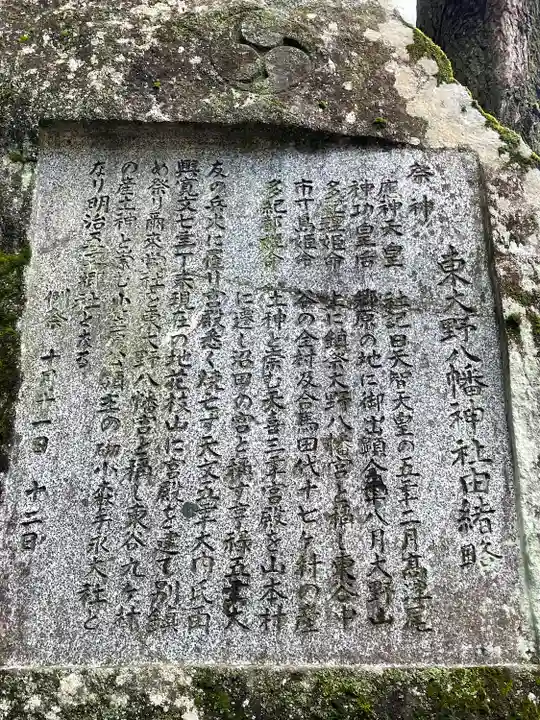 東大野八幡神社由緒略
祭神
應神天皇 社記曰天智天皇の五年二月高津尾
神功皇后 郷原の地に御出顕仝年八月大野山
多紀理姫命 上に鎮祭大野八幡宮と稱し東谷中
市寸島姫命 谷の全村及合馬田代十七ケ村の産
多紀都姫命 土神と崇む天喜三年宮殿を山本村
に遷し沼田の宮と稱す享禄五年大
友の兵火に罹り宮殿悉く焼亡す天文五年大内氏再
興寛文七年丁未現在の地花枝山に宮殿を建て別鎮
め祭り爾来當社を東大野八幡宮と稱し東谷九ケ村
の産土神と崇む小倉
なり明治
例祭 十月十一日 十二日